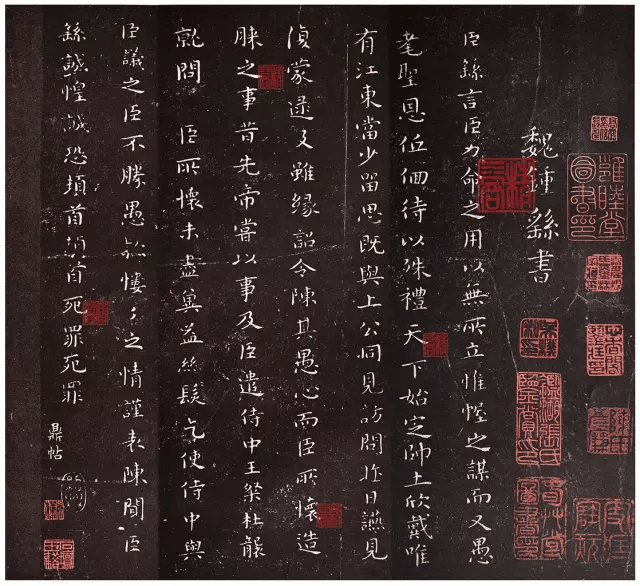 雍睦堂圖書印
魏鍾繇書
臣繇言臣力命之用以無所立惟幄之謀而又愚
耄聖恩低佪待以殊禮 天下始定帥土欣戴唯
有江東當少留思既與上公同見訪問昨日讌見
復蒙逮及雖緣詔令陳其愚心而臣所懷造
膝之事昔先帝嘗以事及臣遣侍中王粲杜襲
就問 臣所懷未盡冀益絲髮乞使侍中與
臣議之臣不勝愚款慺々之情謹表陳聞臣
繇誠惶誠恐頓首頓首死罪死罪
鼎帖